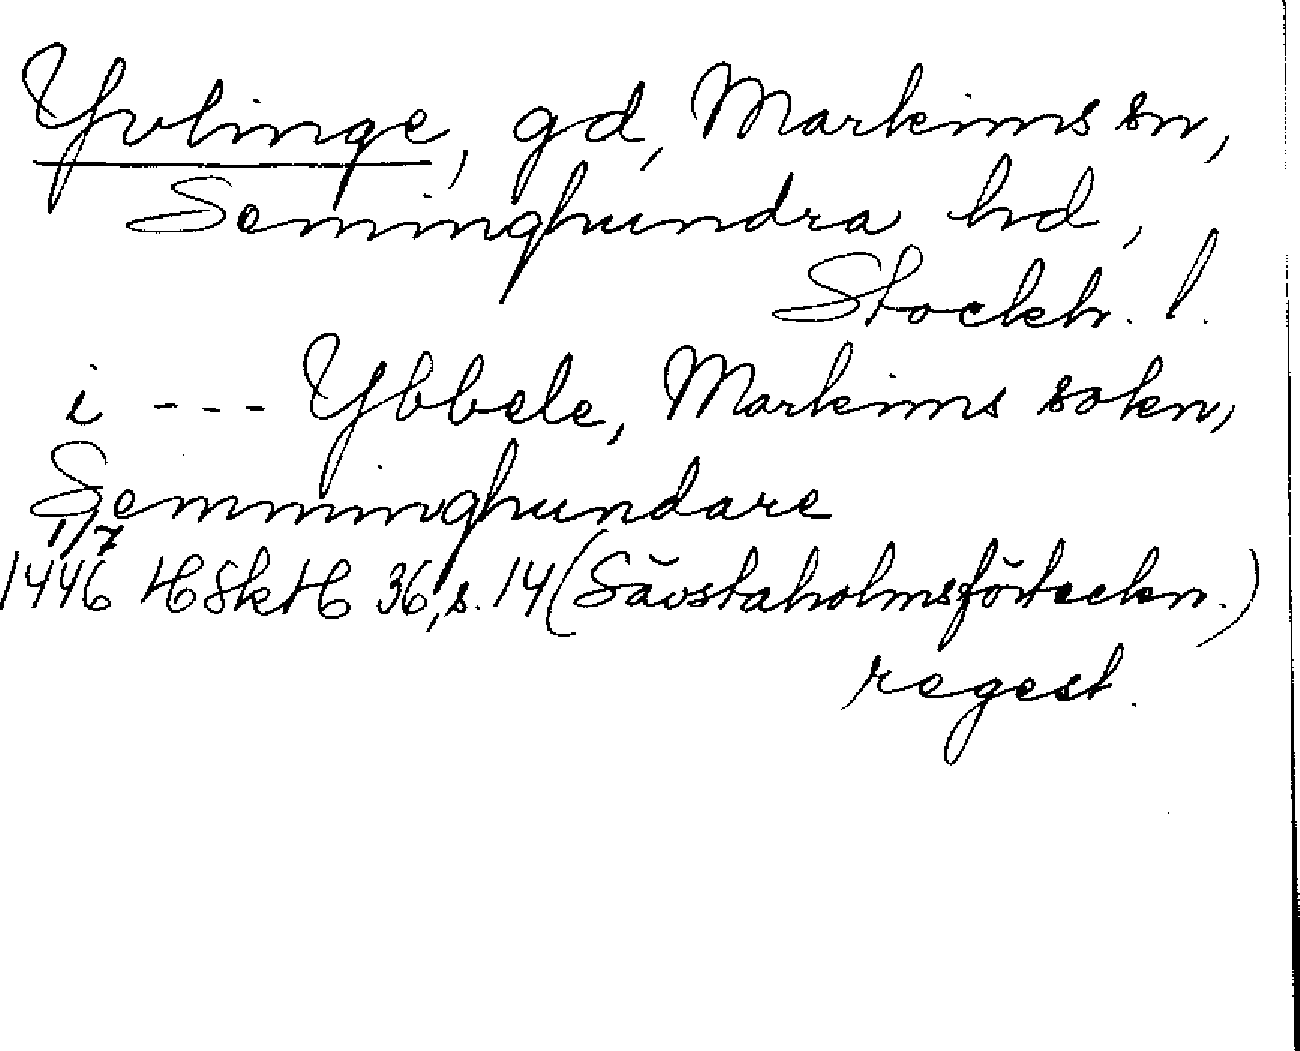 Yvlinge, gd, Markims sn,
Seminghundra hd,
Stockh. l.
i --- Ybbele, Markims sokn,
Semminghundare
1/7
1446 HSkH 36, s. 14 (Sävstaholmsförteckn.)
regest.